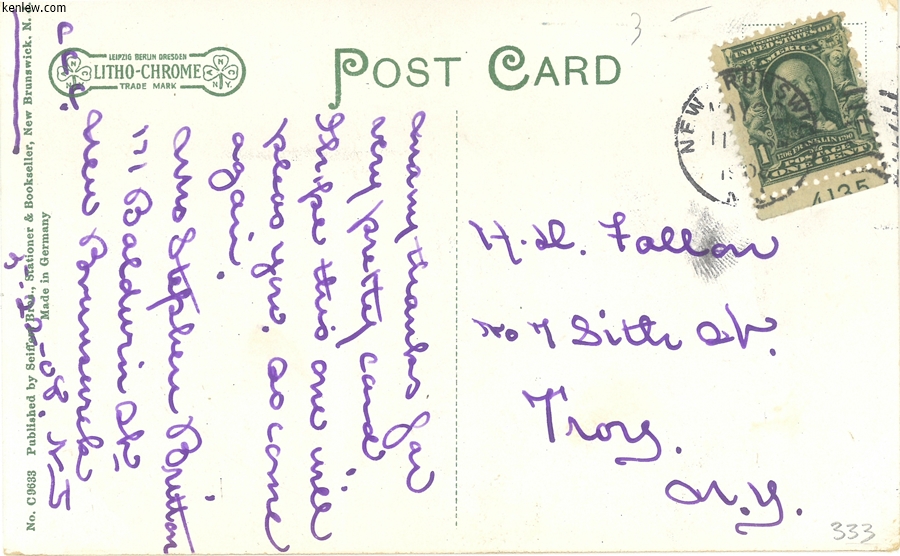 kenlew.com
LEIPZIG BERLIN DRESDEN
LITHO-CHROME
TRADE MARK
N.C.C.
N.Y.
POST CARD
3 -
UNITED STATES OF
AMERICA
1706 FRANKLIN 1790
POSTAGE
1 ONE CENT 1
4135
NEW BRUNSWICK
many thanks for
very pretty card
I hope this one will
pleas you. do come
again.
mrs Stephen Britton
171 Baldwin St
new Brunswick
N J
H. D. Fallow
no 7 Sitth St.
Troy.
N.Y.
333
No. C 9633 Published by Seiffert Bros., Stationer & Bookseller, New Brunswick, N.
Made in Germany